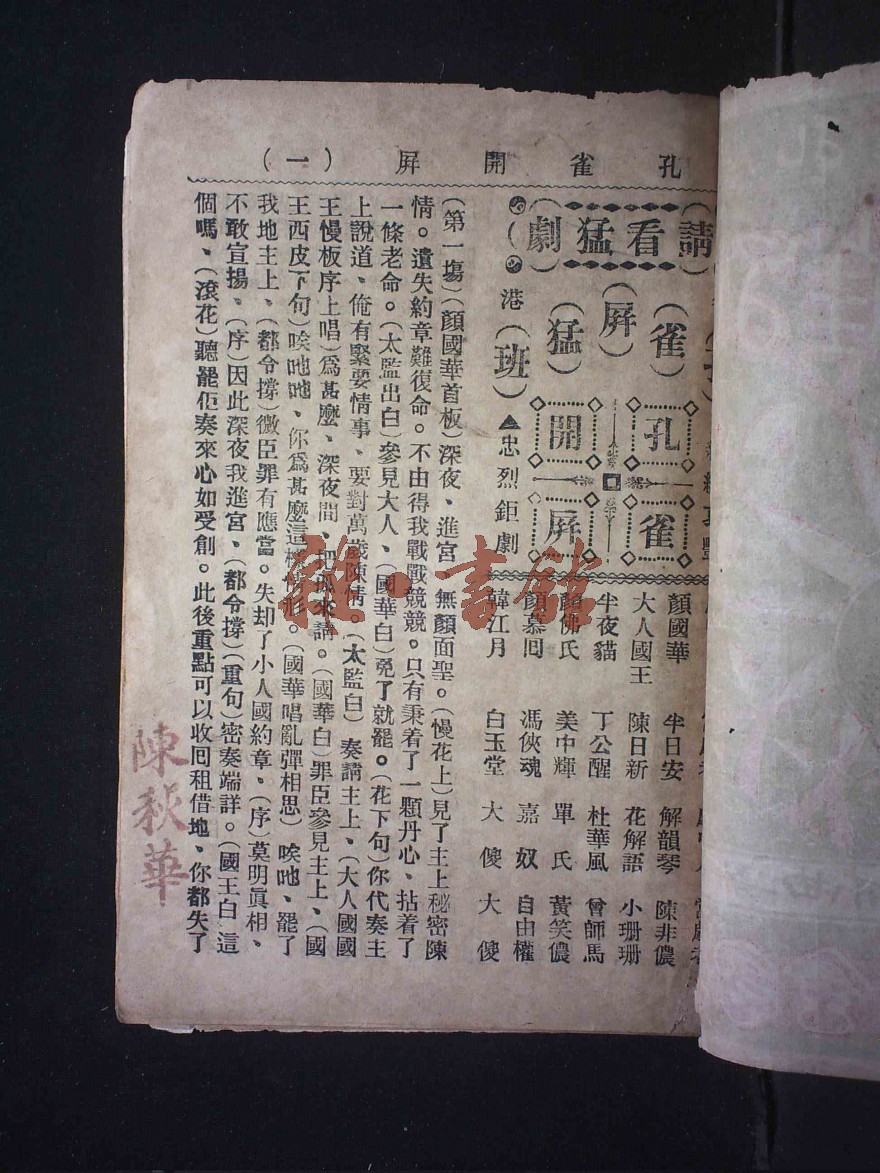 孔雀開屏（一）
請看猛劇
（雀）（屏）（猛）
孔雀開屏
港（班）▲忠烈鉅劇
顏國華　半日安　解韻琴　陳非儂
大人國王　陳日新　花解語　小珊珊
半夜貓　丁公醒　杜華風　曾師馬
顏佛氏　美中輝　單　氏　黃笑儂
顏慕囘　馮俠魂　嘉　奴　自由權
韓江月　白玉堂　大　傻　大　傻
（第一塲）（顏國華首板）深夜、進宮　無顏面聖。（慢花上）見了主上秘密陳
情。遺失約章難復命。不由得我戰戰競競。只有秉着了一顆丹心、拈着了
一條老命。（太監出白）參見大人、（國華白）免了就罷。（花下句）你代奏主
上說道、俺有緊要情事、要對萬歲陳情。（太監白）奏請主上、（大人國國
王慢板序上唱）爲甚麼、深夜間、把孤來請。（國華白）罪臣參見主上、（國
王西皮下句）唉吔吔、你爲甚麼這樣情形。（國華唱亂彈相思）唉吔、罷了
我地主上、（都令撐）微臣罪有應當。失却了小人國約章、（序）莫明眞相、
不敢宣揚、（序）因此深夜我進宮、（都令撐）（重句）密奏端詳。（國王白）這
個嗎、（滾花）聽罷佢奏來心如受創。此後重點可以收囘租借地、你都失了
陳秋華